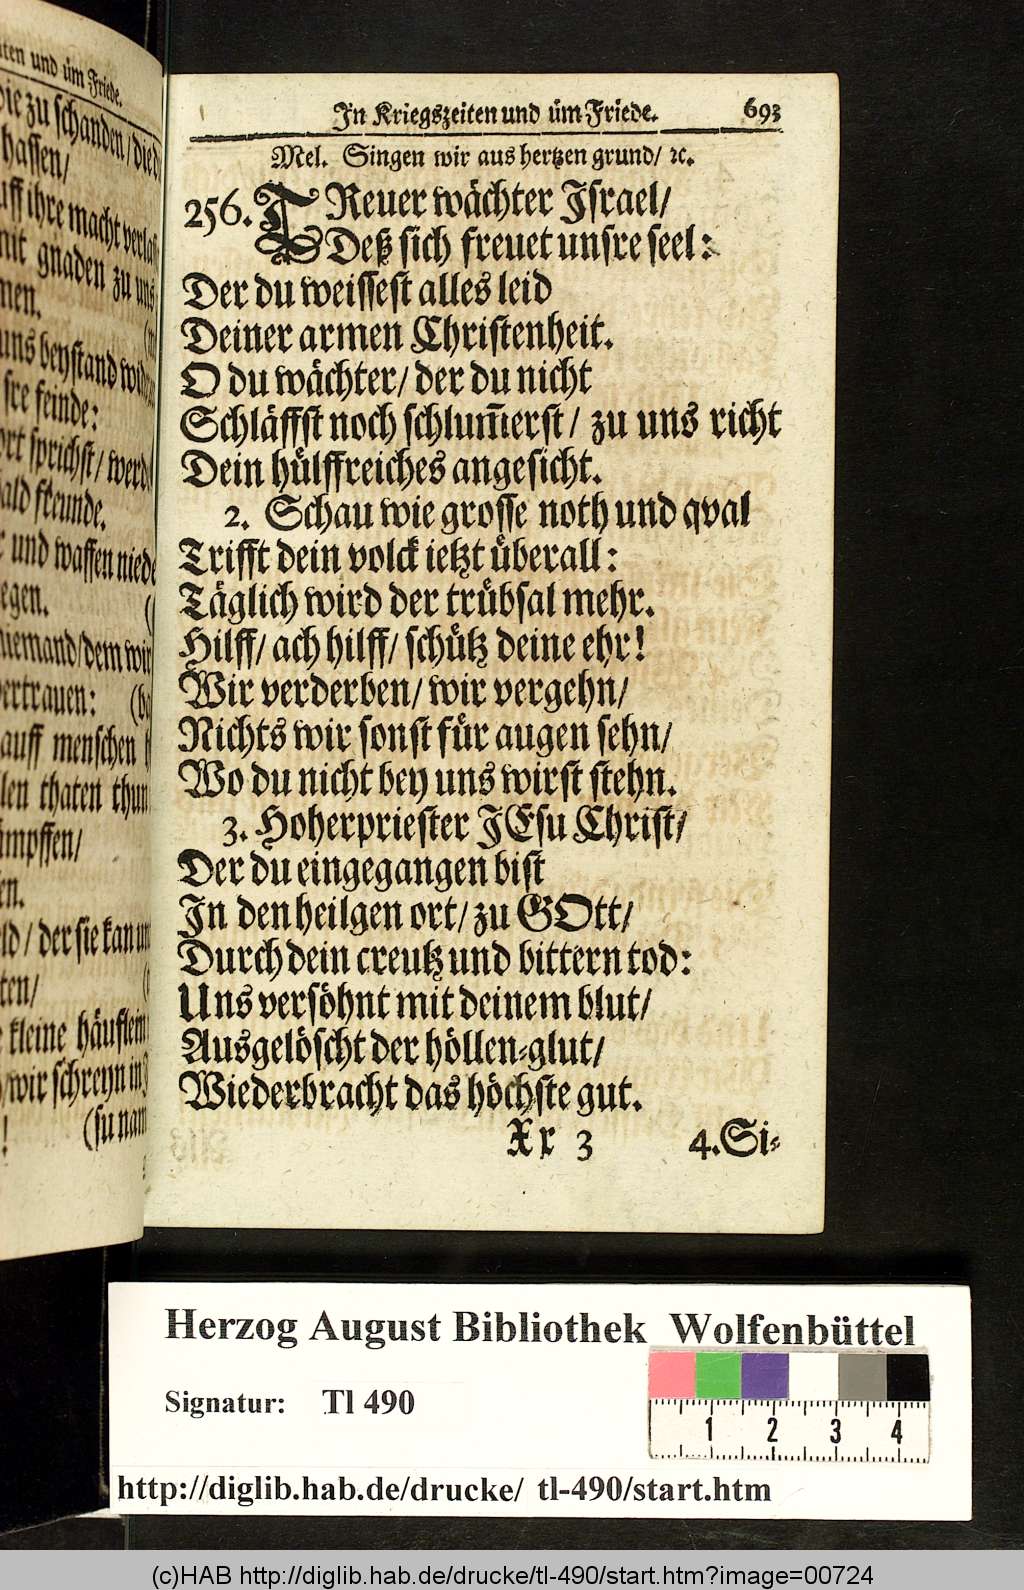 ten und üm Friede.
die zu schanden/ die
hassen/
uff ihre macht verlas
mit gnaden zu uns
men.
uns beystand wid
sre feinde:
ort sprichst/ werd
ald freunde.
r und waffen niede
egen.
niemand/dem wir
vertrauen:
auff menschen
len thaten thun
ämpffen/
en.
eld/ der sie kan un
ten/
kleine häuflein
wir schreyn in
! (su nam
In Kriegszeiten und üm Friede. 693
Mel. Singen wir aus hertzen grund/ ꝛc.
256. TReuer wächter Israel/
Deß sich freuet unsre seel:
Der du weissest alles leid
Deiner armen Christenheit.
O du wächter/ der du nicht
Schläffst noch schlum̄erst/ zu uns richt
Dein hülffreiches angesicht.
2. Schau wie grosse noth und qval
Trifft dein volck ietzt überall:
Täglich wird der trübsal mehr.
Hilff/ ach hilff/ schütz deine ehr!
Wir verderben/ wir vergehn/
Nichts wir sonst für augen sehn/
Wo du nicht bey uns wirst stehn.
3. Hoherpriester JEsu Christ/
Der du eingegangen bist
In den heilgen ort/ zu GOtt/
Durch dein creutz und bittern tod:
Uns versöhnt mit deinem blut/
Ausgelöscht der höllen-glut/
Wiederbracht das höchste gut.
Xx 3 4. Si-
Herzog August Bibliothek Wolfenbüttel
Signatur: Tl 490
1 2 3 4
http://diglib.hab.de/drucke/ tl-490/start.htm
(c)HAB http://diglib.hab.de/drucke/tl-490/start.htm?image=00724